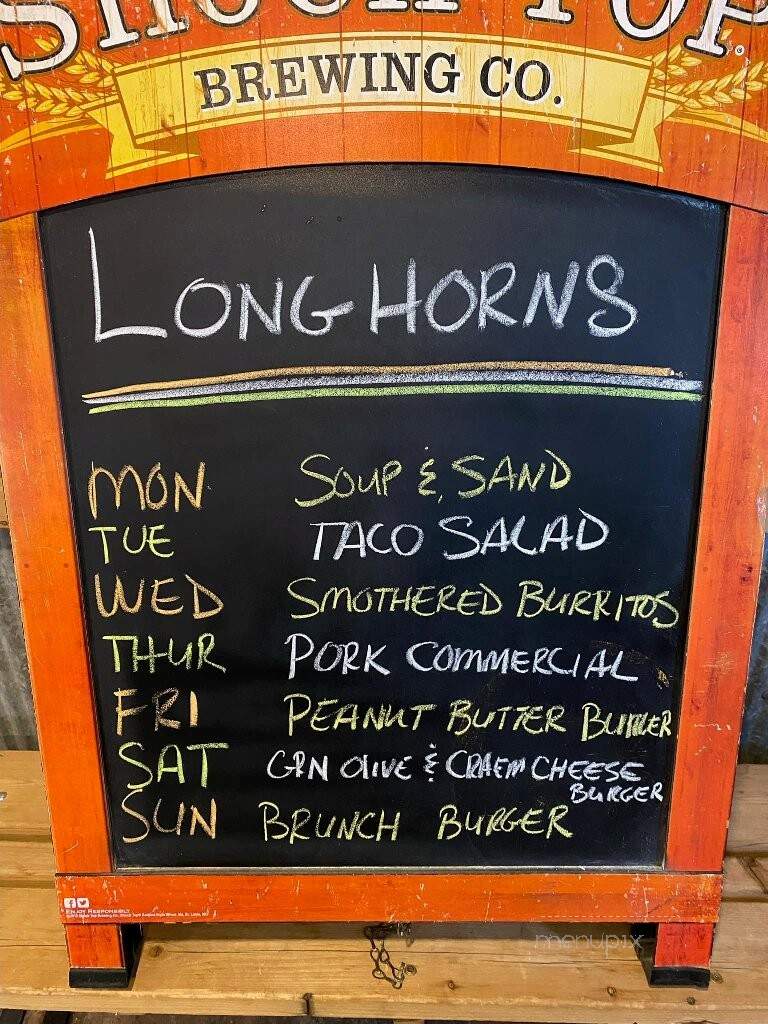 BREWING CO.
LONGHORNS
MON SOUP & SAND
TUE TACO SALAD
WED SMOTHERED BURRITOS
THUR PORK COMMERCIAL
FRI PEANUT BUTTER BURGER
SAT GRN OLIVE & CRAEM CHEESE
BURGER
SUN BRUNCH BURGER
ENJOY RESPONSIBLY
menupix